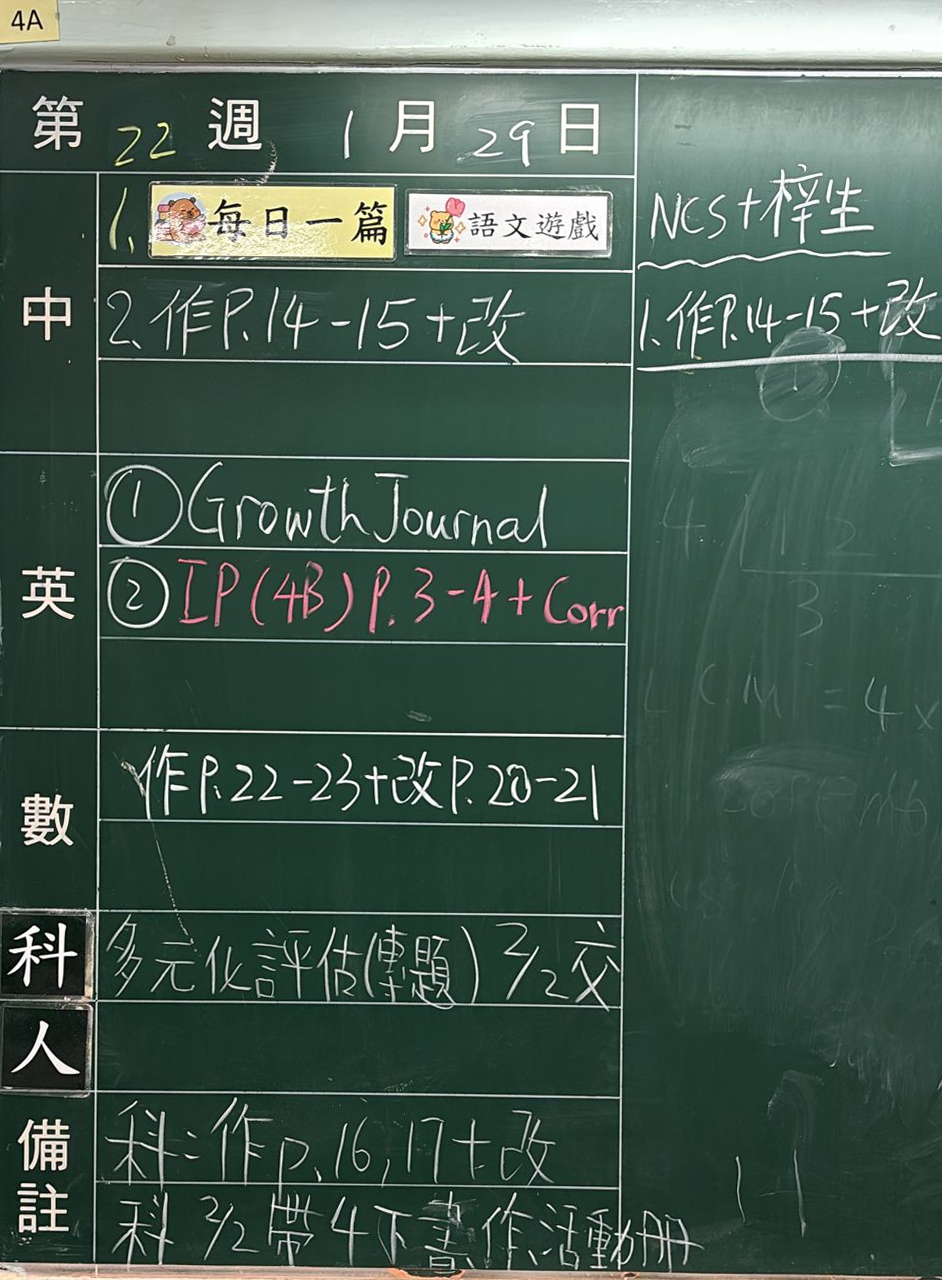 4A
第 22 週 1 月 29 日
中
1. 每日一篇 語文遊戲
2. 作P.14-15+改
英
① Growth Journal
② IP (4B) P.3-4 + Corr
數
作P.22-23+改P.20-21
科
多元化評估(專題) 2/2交
人
備註
科:作p.16,17+改
科 2/2 帶4下書,作,活動冊
NCS+梓生
1.作P.14-15+改
4
1 1 2
3
LCM = 4x